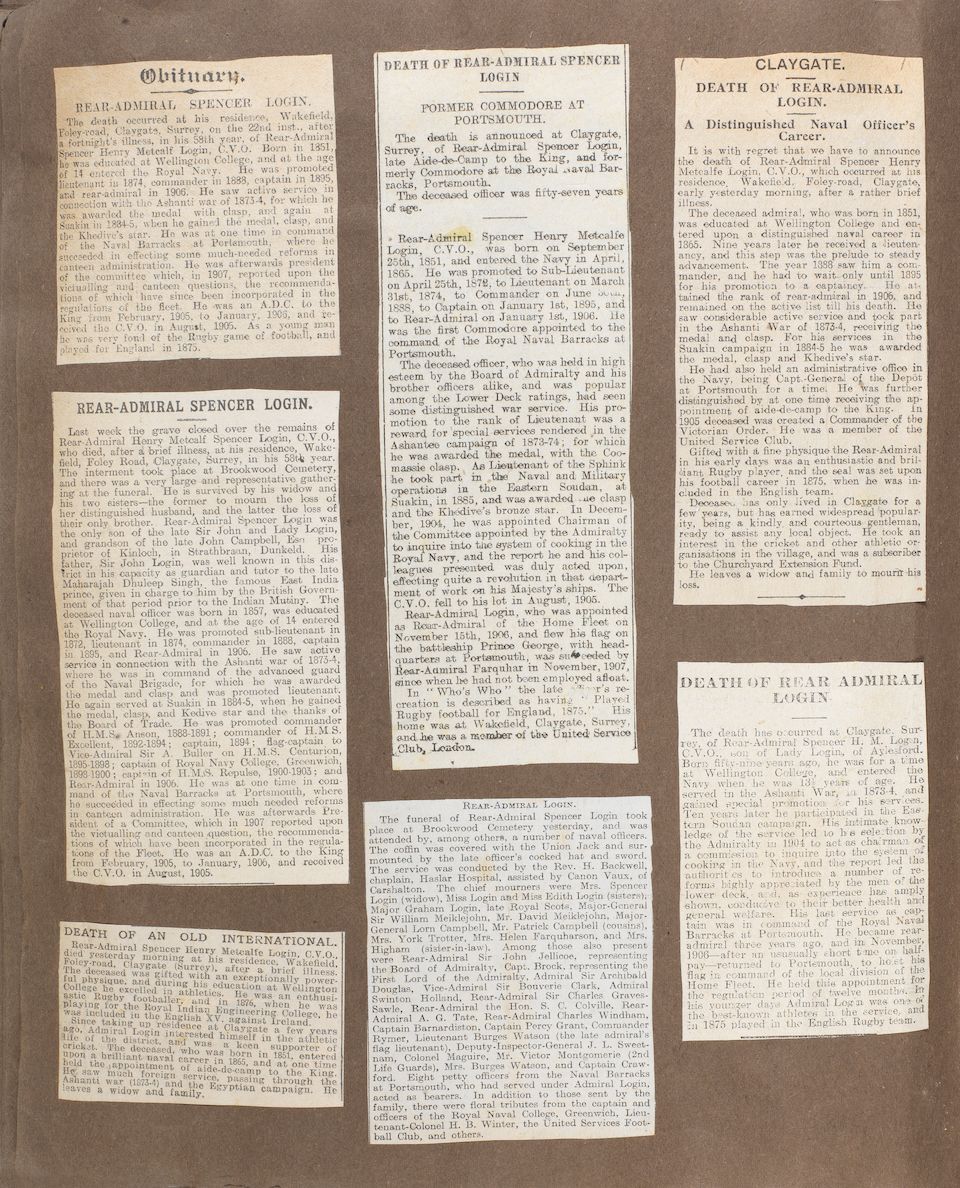 Obituary.
REAR-ADMIRAL SPENCER LOGIN.
The death occurred at his residence, Wakefield,
Foley-road, Claygate, Surrey, on the 22nd inst., after
a fortnight's illness, in his 58th year, of Rear-Admiral
Spencer Henry Metcalf Login, C.V.O. Born in 1851,
he was educated at Wellington College, and at the age
of 14 entered the Royal Navy. He was promoted
lieutenant in 1874, commander in 1888, captain in 1895,
and rear-admiral in 1906. He saw active service in
connection with the Ashanti war of 1873-4, for which he
was awarded the medal with clasp, and again at
Suakin in 1884-5, when he gained the medal, clasp, and
the Khedive's star. He was at one time in command
of the Naval Barracks at Portsmouth, where he
succeeded in effecting some much-needed reforms in
canteen administration. He was afterwards president
of the committee which, in 1907, reported upon the
victualling and canteen questions, the recommenda-
tions of which have since been incorporated in the
regulations of the fleet. He was an A.D.C. to the
King from February, 1905, to January, 1906, and re-
ceived the C.V.O. in August, 1905. As a young man
he was very fond of the Rugby game of football, and
played for England in 1875.
REAR-ADMIRAL SPENCER LOGIN.
Last week the grave closed over the remains of
Rear-Admiral Henry Metcalf Spencer Login, C.V.O.,
who died, after a brief illness, at his residence, Wake-
field, Foley Road, Claygate, Surrey, in his 58th year.
The interment took place at Brookwood Cemetery,
and there was a very large and representative gather-
ing at the funeral. He is survived by his widow and
his two sisters—the former to mourn the loss of
her distinguished husband, and the latter the loss of
their only brother. Rear-Admiral Spencer Login was
the only son of the late Sir John and Lady Login,
and grandson of the late John Campbell, Esq pro-
prietor of Kinloch, in Strathbraan, Dunkeld. His
father, Sir John Login, was well known in this dis-
trict in his capacity as guardian and tutor to the late
Maharajah Dhuleep Singh, the famous East India
prince, given in charge to him by the British Govern-
ment of that period prior to the Indian Mutiny. The
deceased naval officer was born in 1857, was educated
at Wellington College, and at the age of 14 entered
the Royal Navy. He was promoted sub-lieutenant in
1872, lieutenant in 1874, commander in 1888, captain
in 1895, and Rear-Admiral in 1906. He saw active
service in connection with the Ashanti war of 1873-4,
where he was in command of the advanced guard
of the Naval Brigade, for which he was awarded
the medal and clasp and was promoted lieutenant.
He again served at Suakin in 1884-5, when he gained
the medal, clasp, and Kedive star and the thanks of
the Board of Trade. He was promoted commander
of H.M.S. Anson, 1888-1891; commander of H.M.S.
Excellent, 1892-1894; captain, 1894; flag-captain to
Vice-Admiral Sir A. Buller on H.M.S. Centurion,
1895-1898; captain of Royal Navy College, Greenwich,
1898-1900; captain of H.M.S. Repulse, 1900-1903; and
Rear-Admiral in 1906. He was at one time in com-
mand of the Naval Barracks at Portsmouth, where
he succeeded in effecting some much needed reforms
in canteen administration. He was afterwards Pre-
sident of a Committee, which in 1907 reported upon
the victualling and canteen question, the recommenda-
tions of which have been incorporated in the regula-
tions of the Fleet. He was an A.D.C. to the King
from February, 1905, to January, 1906, and received
the C.V.O. in August, 1905.
DEATH OF AN OLD INTERNATIONAL.
Rear-Admiral Spencer Henry Metcalfe Login, C.V.O.,
died yesterday morning at his residence, Wakefield,
Foley-road, Claygate (Surrey), after a brief illness.
The deceased was gifted with an exceptionally power-
ful physique, and during his education at Wellington
College he excelled in athletics. He was an enthusi-
astic Rugby footballer, and in 1876, when he was
playing for the Royal Indian Engineering College, he
was included in the English XV. against Ireland.
Since taking up residence at Claygate a few years
ago, Admiral Login interested himself in the athletic
life of the district, and was a keen supporter of
cricket. The deceased, who was born in 1851, entered
upon a brilliant naval career in 1865, and at one time
held the appointment of aide-de-camp to the King.
He saw much foreign service, passing through the
Ashanti war (1873-4) and the Egyptian campaign. He
leaves a widow and family.
DEATH OF REAR-ADMIRAL SPENCER
LOGIN
FORMER COMMODORE AT
PORTSMOUTH.
The death is announced at Claygate,
Surrey, of Rear-Admiral Spencer Login,
late Aide-de-Camp to the King, and for-
merly Commodore at the Royal Naval Bar-
racks, Portsmouth.
The deceased officer was fifty-seven years
of age.
Rear-Admiral Spencer Henry Metcalfe
Login, C.V.O., was born on September
25th, 1851, and entered the Navy in April,
1865. He was promoted to Sub-Lieutenant
on April 25th, 1872, to Lieutenant on March
31st, 1874, to Commander on June
1888, to Captain on January 1st, 1895, and
to Rear-Admiral on January 1st, 1906. He
was the first Commodore appointed to the
command of the Royal Naval Barracks at
Portsmouth.
The deceased officer, who was held in high
esteem by the Board of Admiralty and his
brother officers alike, and was popular
among the Lower Deck ratings, had seen
some distinguished war service. His pro-
motion to the rank of Lieutenant was a
reward for special services rendered in the
Ashantee campaign of 1873-74; for which
he was awarded the medal, with the Coo-
massie clasp. As Lieutenant of the Sphink
he took part in the Naval and Military
operations in the Eastern Soudan, at
Suakin, in 1885, and was awarded the clasp
and the Khedive's bronze star. In Decem-
ber, 1904, he was appointed Chairman of
the Committee appointed by the Admiralty
to inquire into the system of cooking in the
Royal Navy, and the report he and his col-
leagues presented was duly acted upon,
effecting quite a revolution in that depart-
ment of work on his Majesty's ships. The
C.V.O. fell to his lot in August, 1905.
Rear-Admiral Login, who was appointed
as Rear-Admiral of the Home Fleet on
November 15th, 1906, and flew his flag on
the battleship Prince George, with head-
quarters at Portsmouth, was succeeded by
Rear-Admiral Farquhar in November, 1907,
since when he had not been employed afloat.
In "Who's Who" the late re-
creation is described as having "Played
Rugby football for England, 1875." His
home was at Wakefield, Claygate, Surrey,
and he was a member of the United Service
Club, London.
REAR-ADMIRAL LOGIN.
The funeral of Rear-Admiral Spencer Login took
place at Brookwood Cemetery yesterday, and was
attended by, among others, a number of naval officers.
The coffin was covered with the Union Jack and sur-
mounted by the late officer's cocked hat and sword.
The service was conducted by the Rev. H. Backwell,
chaplain, Haslar Hospital, assisted by Canon Vaux, of
Carshalton. The chief mourners were Mrs. Spencer
Login (widow), Miss Login and Miss Edith Login (sisters),
Major Graham Login, late Royal Scots, Major-General
Sir William Meiklejohn, Mr. David Meiklejohn, Major-
General Lorn Campbell, Mr. Patrick Campbell (cousins),
Mrs. York Trotter, Mrs. Helen Farquharson, and Mrs.
Higham (sister-in-law). Among those also present
were Rear-Admiral Sir John Jellicoe, representing
the Board of Admiralty, Capt. Brock, representing the
First Lord of the Admiralty, Admiral Sir Archibald
Douglas, Vice-Admiral Sir Bouverie Clark, Admiral
Swinton Holland, Rear-Admiral Sir Charles Graves-
Sawle, Rear-Admiral the Hon. S. C. Colville, Rear-
Admiral A. G. Tate, Rear-Admiral Charles Windham,
Captain Barnardiston, Captain Percy Grant, Commander
Rymer, Lieutenant Burges Watson (the late admiral's
flag lieutenant), Deputy-Inspector-General J. L. Sweet-
nam, Colonel Maguire, Mr. Victor Montgomerie (2nd
Life Guards), Mrs. Burges Watson, and Captain Craw-
ford. Eight petty officers from the Naval Barracks
at Portsmouth, who had served under Admiral Login,
acted as bearers. In addition to those sent by the
family, there were floral tributes from the captain and
officers of the Royal Naval College, Greenwich, Lieu-
tenant-Colonel H. B. Winter, the United Services Foot-
ball Club, and others.
CLAYGATE.
DEATH OF REAR-ADMIRAL
LOGIN.
A Distinguished Naval Officer's
Career.
It is with regret that we have to announce
the death of Rear-Admiral Spencer Henry
Metcalfe Login, C.V.O., which occurred at his
residence, Wakefield, Foley-road, Claygate,
early yesterday morning, after a rather brief
illness.
The deceased admiral, who was born in 1851,
was educated at Wellington College and en-
tered upon a distinguished naval career in
1865. Nine years later he received a lieuten-
ancy, and this step was the prelude to steady
advancement. The year 1888 saw him a com-
mander, and he had to wait only until 1895
for his promotion to a captaincy. He at-
tained the rank of rear-admiral in 1906, and
remained on the active list till his death. He
saw considerable active service and took part
in the Ashanti War of 1873-4, receiving the
medal and clasp. For his services in the
Suakin campaign in 1884-5 he was awarded
the medal, clasp and Khedive's star.
He had also held an administrative office in
the Navy, being Capt.-General of the Depôt
at Portsmouth for a time. He was further
distinguished by at one time receiving the ap-
pointment of aide-de-camp to the King. In
1905 deceased was created a Commander of the
Victorian Order. He was a member of the
United Service Club.
Gifted with a fine physique the Rear-Admiral
in his early days was an enthusiastic and bril-
liant Rugby player, and the seal was set upon
his football career in 1875, when he was in-
cluded in the English team.
Deceased has only lived in Claygate for a
few years, but has earned widespread popular-
ity, being a kindly and courteous gentleman,
ready to assist any local object. He took an
interest in the cricket and other athletic or-
ganisations in the village, and was a subscriber
to the Churchyard Extension Fund.
He leaves a widow and family to mourn his
loss.
DEATH OF REAR ADMIRAL
LOGIN
The death has occurred at Claygate, Sur-
rey, of Rear-Admiral Spencer H. M. Login,
C.V.O., son of Lady Login, of Aylesford.
Born fifty-nine years ago, he was for a time
at Wellington College, and entered the
Navy when he was 13½ years of age. He
served in the Ashanti War, in 1873-4, and
gained special promotion for his services.
Ten years later he participated in the Eas-
tern Soudan campaign. His intimate know-
ledge of the service led to his selection by
the Admiralty in 1904 to act as chairman of
a commission to inquire into the system of
cooking in the Navy, and the report led the
authorities to introduce a number of re-
forms highly appreciated by the men of the
lower deck, and, as experience has amply
shown, conducive to their better health and
general welfare. His last service as cap-
tain was in command of the Royal Naval
Barracks at Portsmouth. He became rear-
admiral three years ago, and in November,
1906—after an unusually short time on half-
pay—returned to Portsmouth, to hoist his
flag in command of the local division of the
Home Fleet. He held this appointment for
the regulation period of twelve months. In
his younger days Admiral Login was one of
the best-known athletes in the service, and
in 1875 played in the English Rugby team.